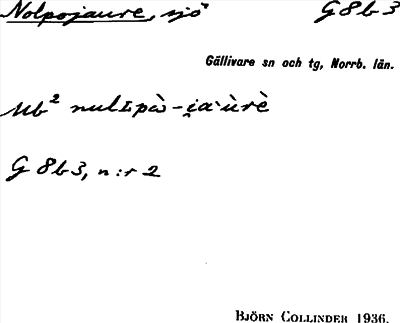 Nolpojaure, sjö G8b3
Gällivare sn och tg, Norrb. län.
Ub² nulɪpὼ-i̯a·ùrè
G 8b3, n:r 2
BJÖRN COLLINDER 1936.